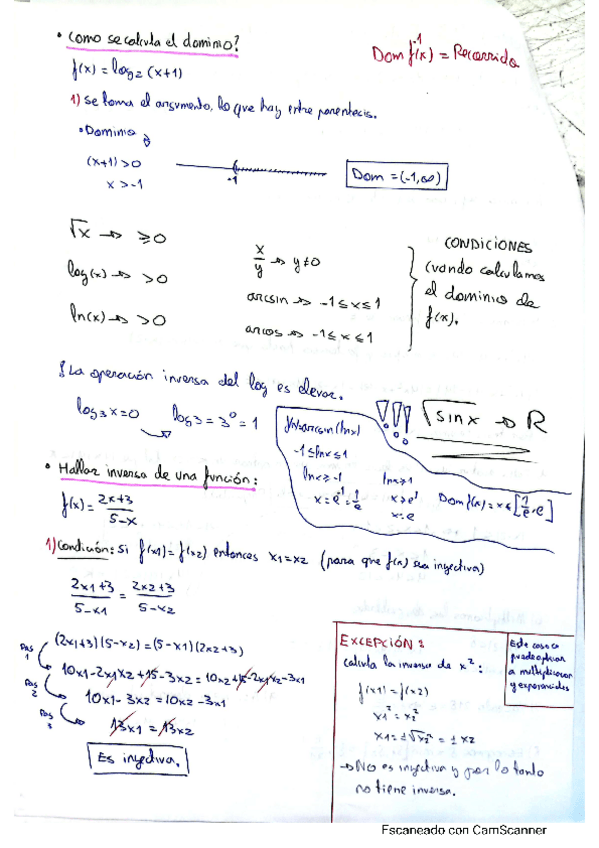 • Como se calcula el dominio?
Dom f⁻¹(x) = Recorrido
f(x) = log₂ (x+1)
1) Se toma el argumento, lo que hay entre parentecis.
• Dominio
(x+1) > 0
x > -1
-1
Dom = (-1, ∞)
√x → ≥ 0
log(x) → > 0
ln(x) → > 0
x/y → y ≠ 0
arcsin → -1 ≤ x ≤ 1
arcos → -1 ≤ x ≤ 1
CONDICIONES
Cuando calculamos
el dominio de
f(x).
La operación inversa del log es elevar.
log₃ x = 0 log₃ = 3⁰ = 1
!!! √sin x → R
arcsin(lnx)
-1 ≤ lnx ≤ 1
lnx ≥ -1
x = e⁻¹ = 1/e
lnx ≥ 1
x ≥ e¹
x = e
Dom f(x) = x ∈ [1/e, e]
• Hallar inversa de una función:
f(x) = 2x+3 / 5-x
1) Condición: Si f(x1) = f(x2) entonces x1 = x2 (para que f(x) sea inyectiva)
2x1+3 / 5-x1 = 2x2+3 / 5-x2
(2x1+3)(5-x2) = (5-x1)(2x2+3)
Pas 1
10x1 - 2x1x2 + 15 - 3x2 = 10x2 + 15 - 2x1x2 - 3x1
Pas 2
10x1 - 3x2 = 10x2 - 3x1
Pas 3
13x1 = 13x2
Es inyectiva.
EXCEPCIÓN:
calcula la inversa de x²:
f(x1) = f(x2)
x1² = x2²
x1 = ±√x2² = ± x2
→ No es inyectiva y por lo tanto
no tiene inversa.
Este caso se
puede aplicar
a multiplicacion
y exponenciales
Escaneado con CamScanner